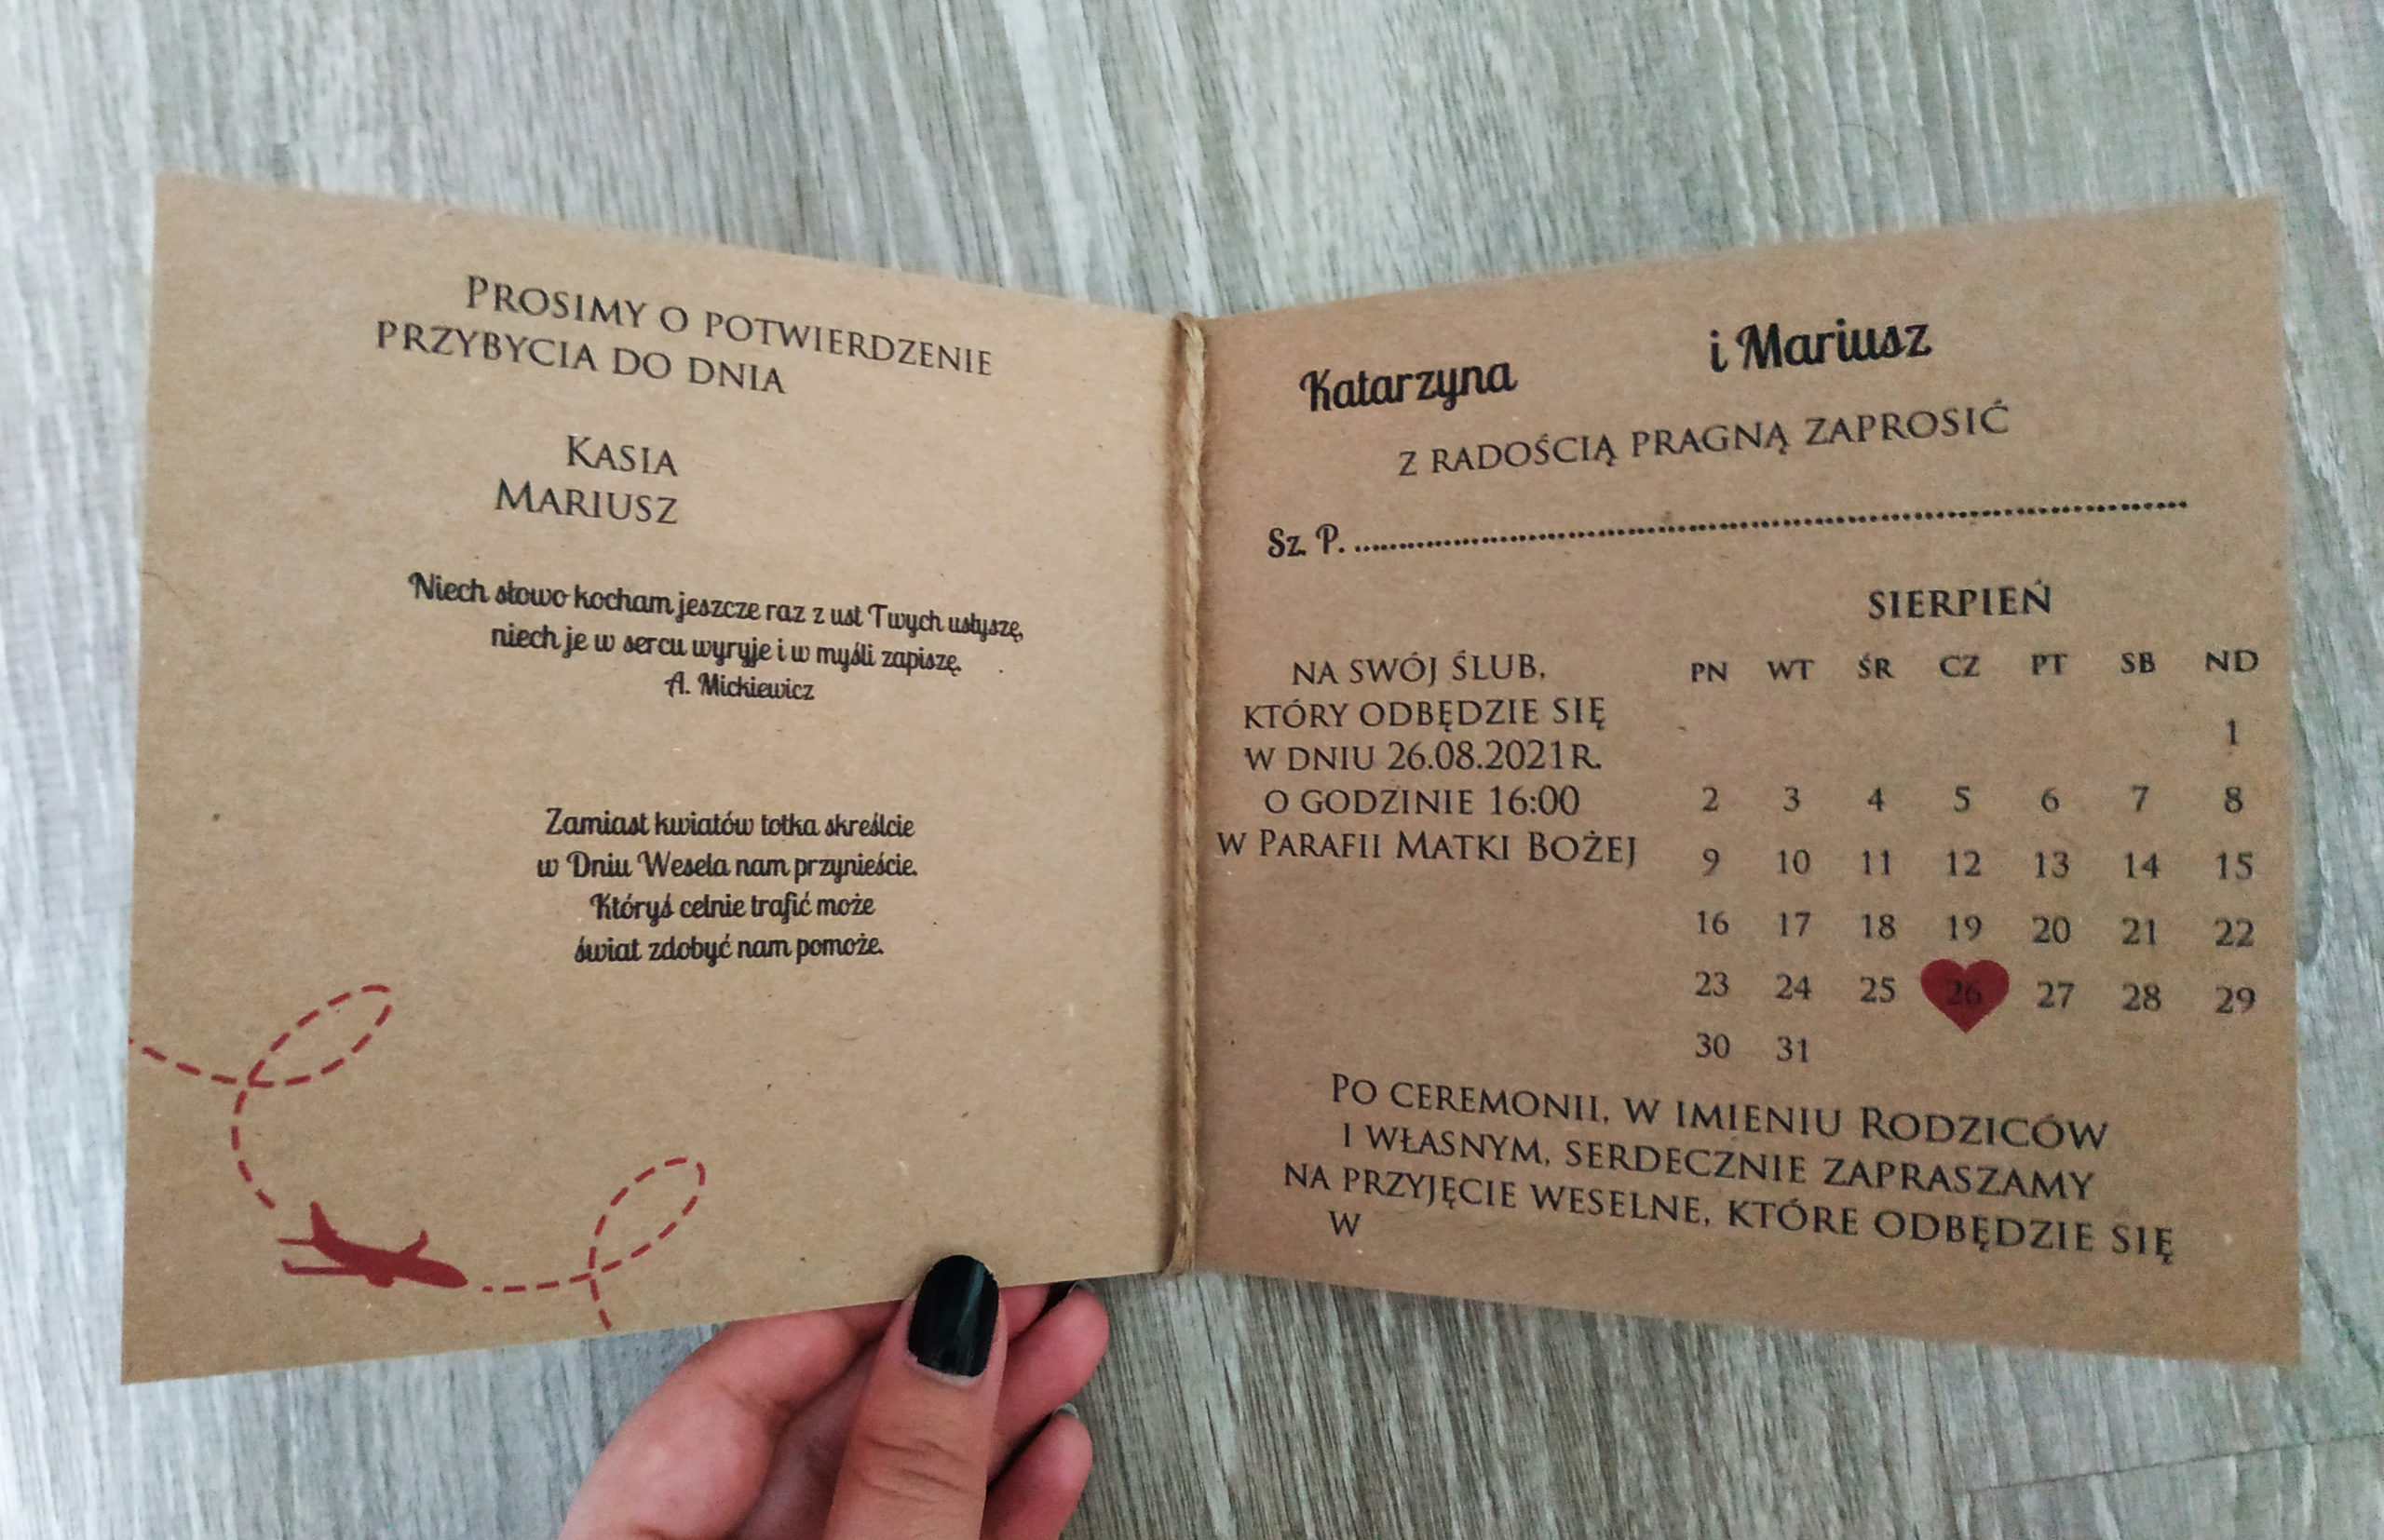 Prosimy o potwierdzenie
przybycia do dnia
Kasia
Mariusz
Niech słowo kocham jeszcze raz z ust Twych usłyszę,
niech je w sercu wyryje i w myśli zapiszę.
A. Mickiewicz
Zamiast kwiatów totka skreślcie
w Dniu Wesela nam przynieście.
Któryś celnie trafić może
świat zdobyć nam pomoże.
Katarzyna i Mariusz
z radością pragną zaprosić
Sz. P. ........................................................
na swój ślub,
który odbędzie się
w dniu 26.08.2021r.
o godzinie 16:00
w Parafii Matki Bożej
SIERPIEŃ
PN WT ŚR CZ PT SB ND
1
2 3 4 5 6 7 8
9 10 11 12 13 14 15
16 17 18 19 20 21 22
23 24 25 26 27 28 29
30 31
Po ceremonii, w imieniu Rodziców
i własnym, serdecznie zapraszamy
na przyjęcie weselne, które odbędzie się
w